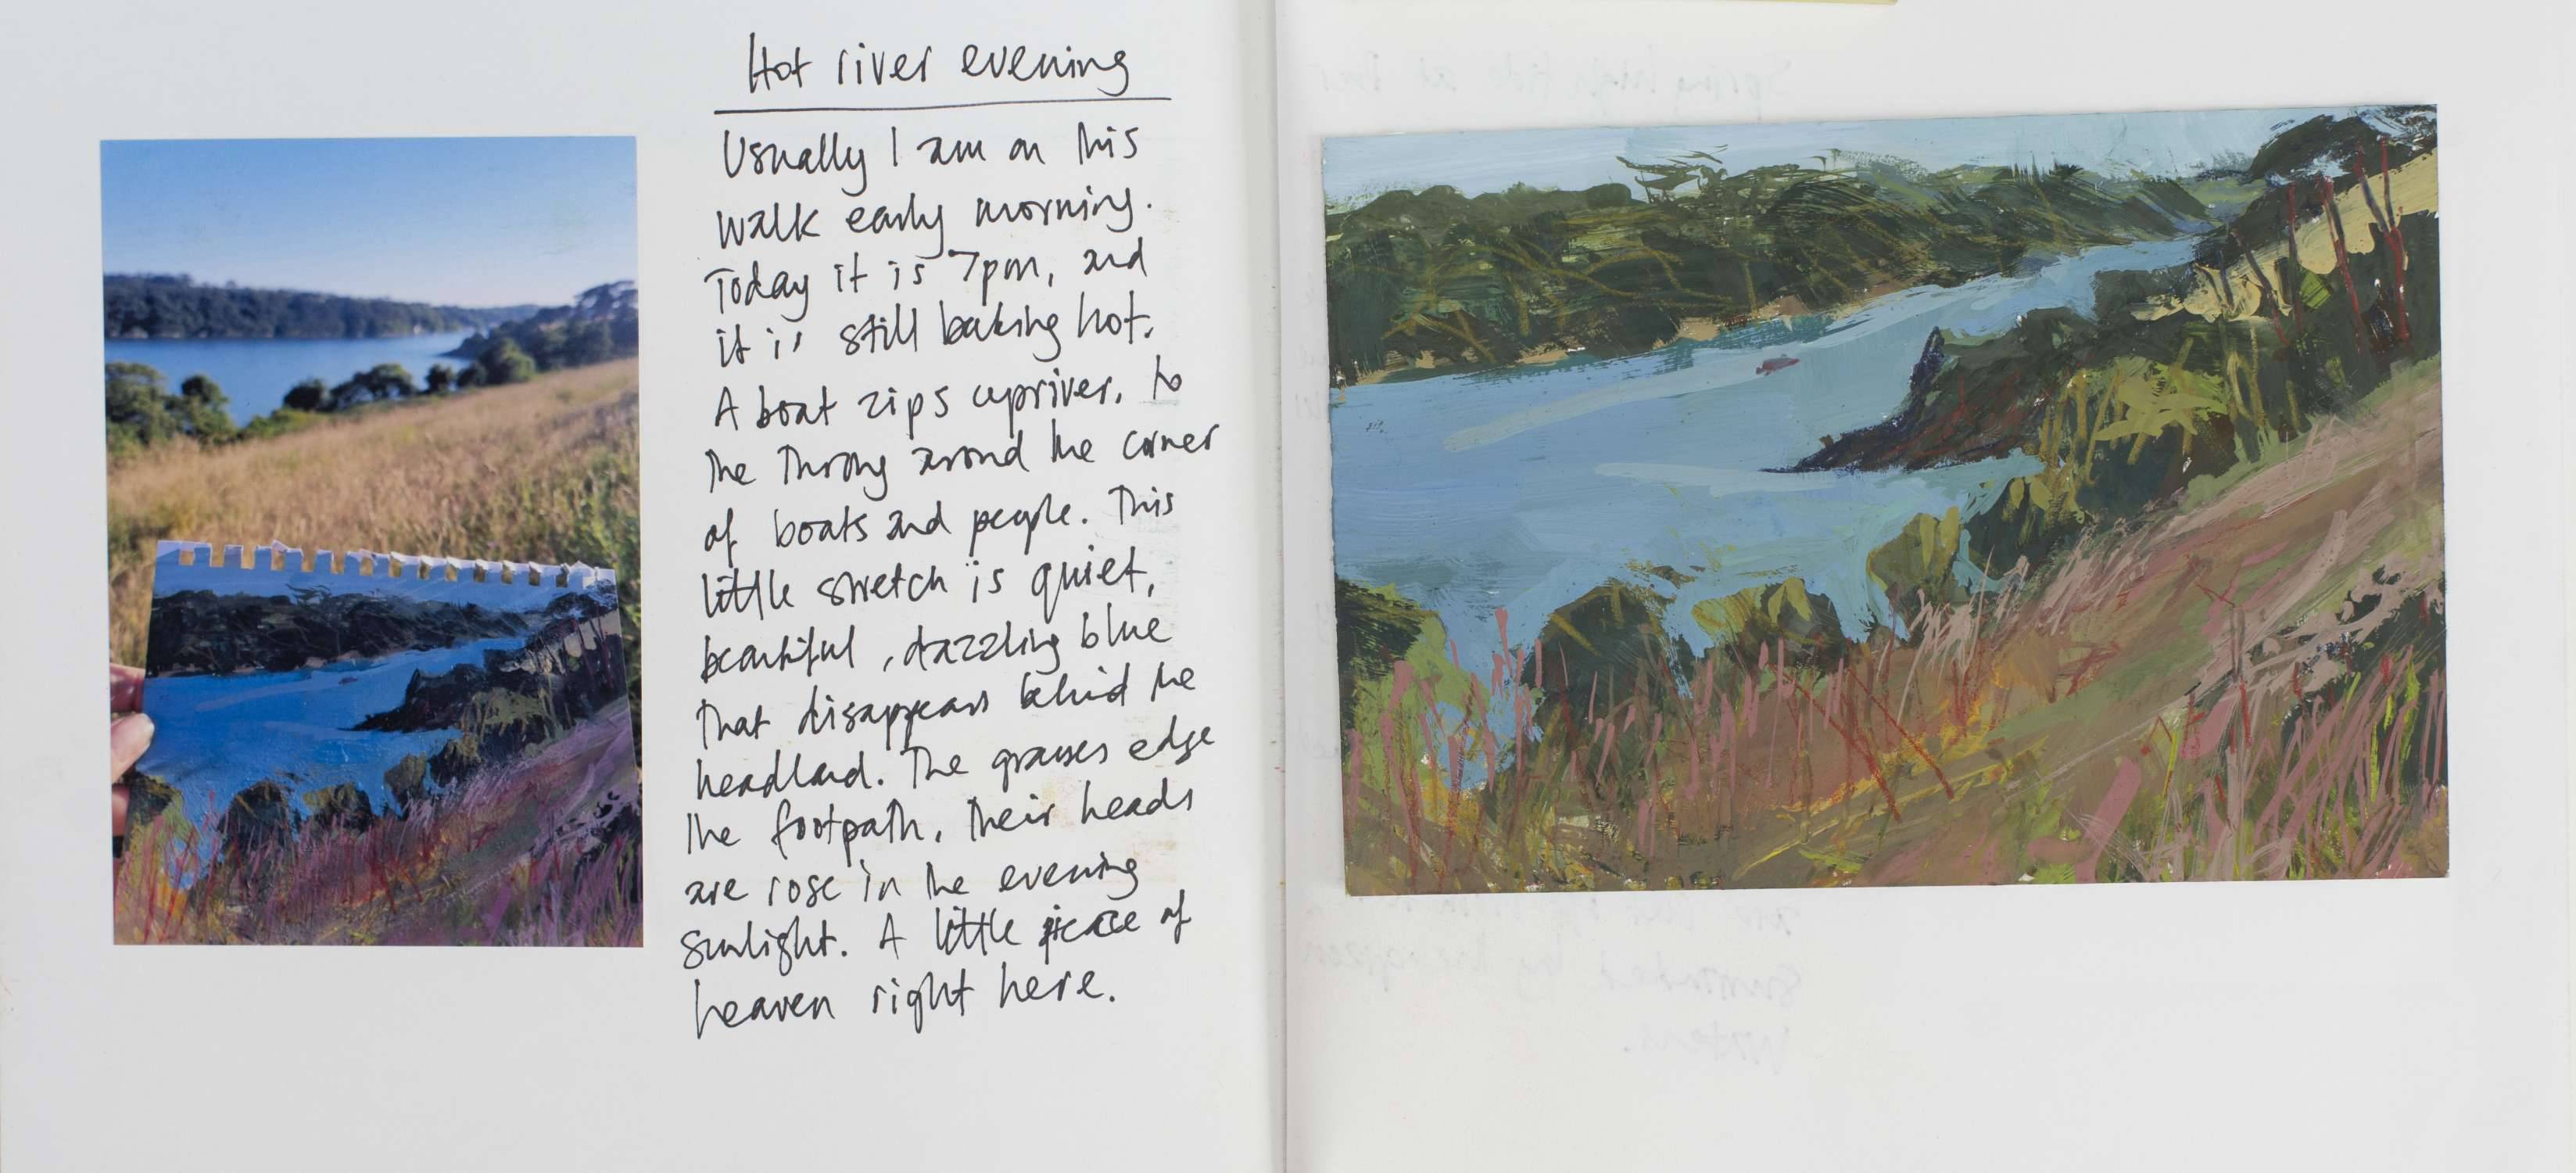 Hot river evening
Usually I am on this
walk early morning.
Today it is 7pm, and
it is still baking hot.
A boat zips upriver, to
the throng around the corner
of boats and people. This
little stretch is quiet,
beautiful, dazzling blue
that disappears behind the
headland. The grasses edge
the footpath, their heads
are rose in the evening
sunlight. A little piece of
heaven right here.